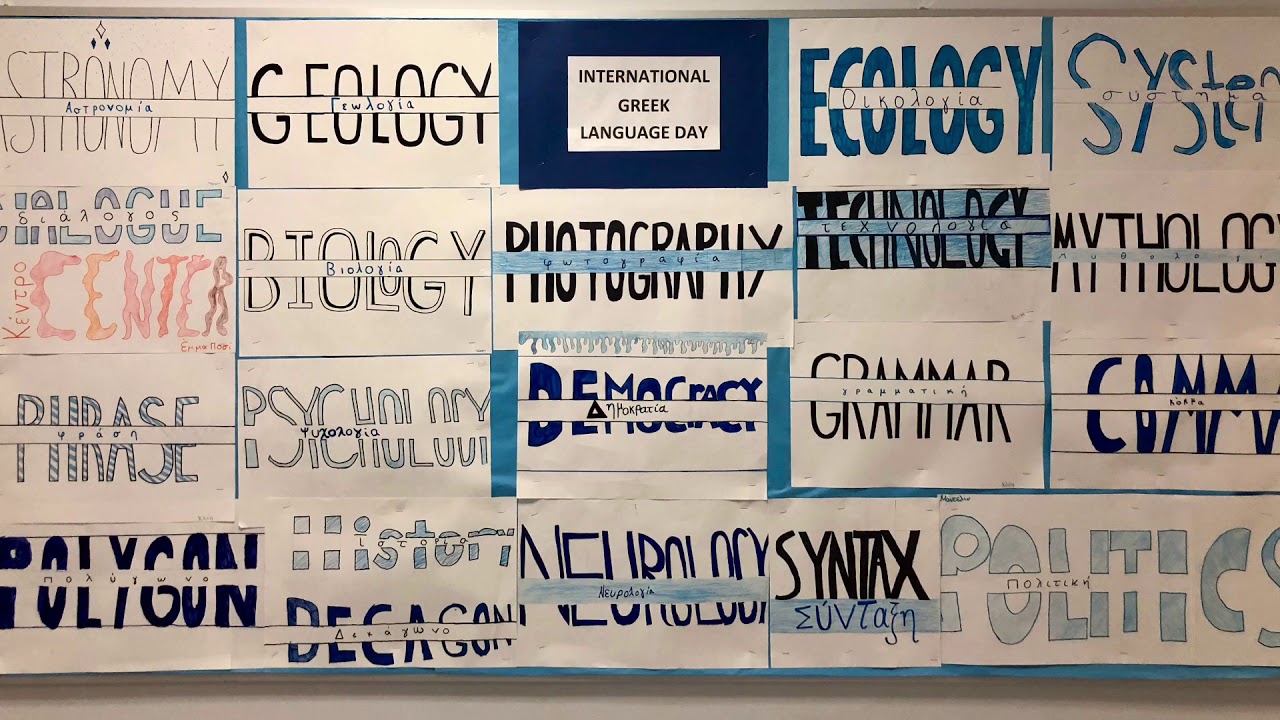 ASTRONOMY
Αστρονομία
GEOLOGY
Γεωλογία
INTERNATIONAL
GREEK
LANGUAGE DAY
ECOLOGY
Οικολογία
System
σύστημα
DIALOGUE
διάλογος
Κέντρο
CENTER
BIOLOGY
Βιολογία
PHOTOGRAPHY
φωτογραφία
TECHNOLOGY
τεχνολογία
MYTHOLOG
μυθολογί
PHRASE
φράση
PSYCHOLOGY
Ψυχολογία
DEMOCRACY
Δημοκρατία
GRAMMAR
γραμματική
COMMA
κόμμα
POLYGON
πολύγωνο
History
ιστορία
DECAGON
Δεκάγωνο
NEUROLOGY
Νευρολογία
SYNTAX
ΣύνΤαξη
POLITICS
Πολιτική